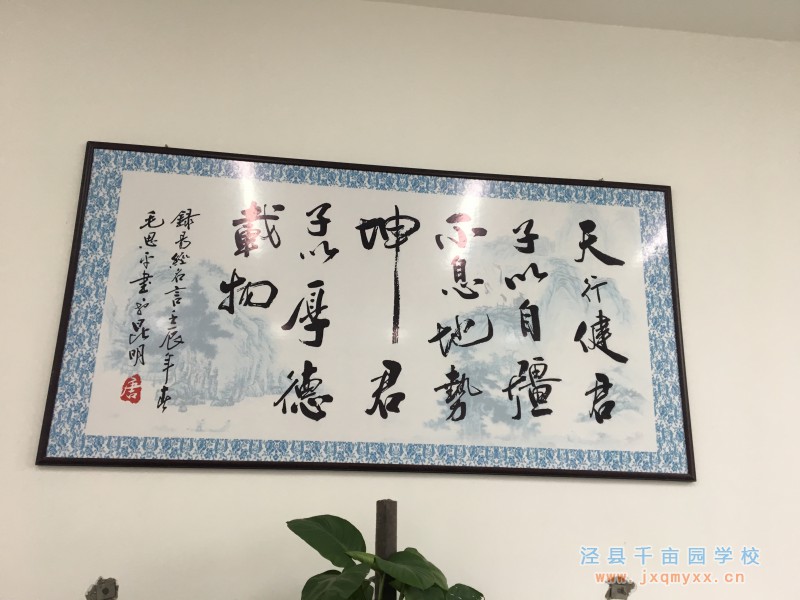 天行健君
子以自彊
不息地勢
坤君
子以厚德
載物
録易經名言壬辰年春
毛思平書於昆明
唐
泾县千亩园学校
www.jxqmyxx.cn